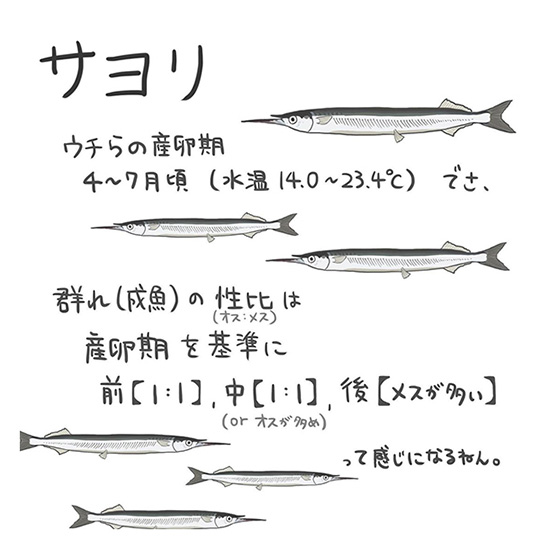 サヨリ
ウチらの産卵期
4〜7月頃（水温14.0〜23.4℃）でさ、
群れ（成魚）の性比は
（オス：メス）
産卵期を基準に
前【1:1】,中【1:1】,後【メスが多い】
（or オスが多め）
って感じになるねん。